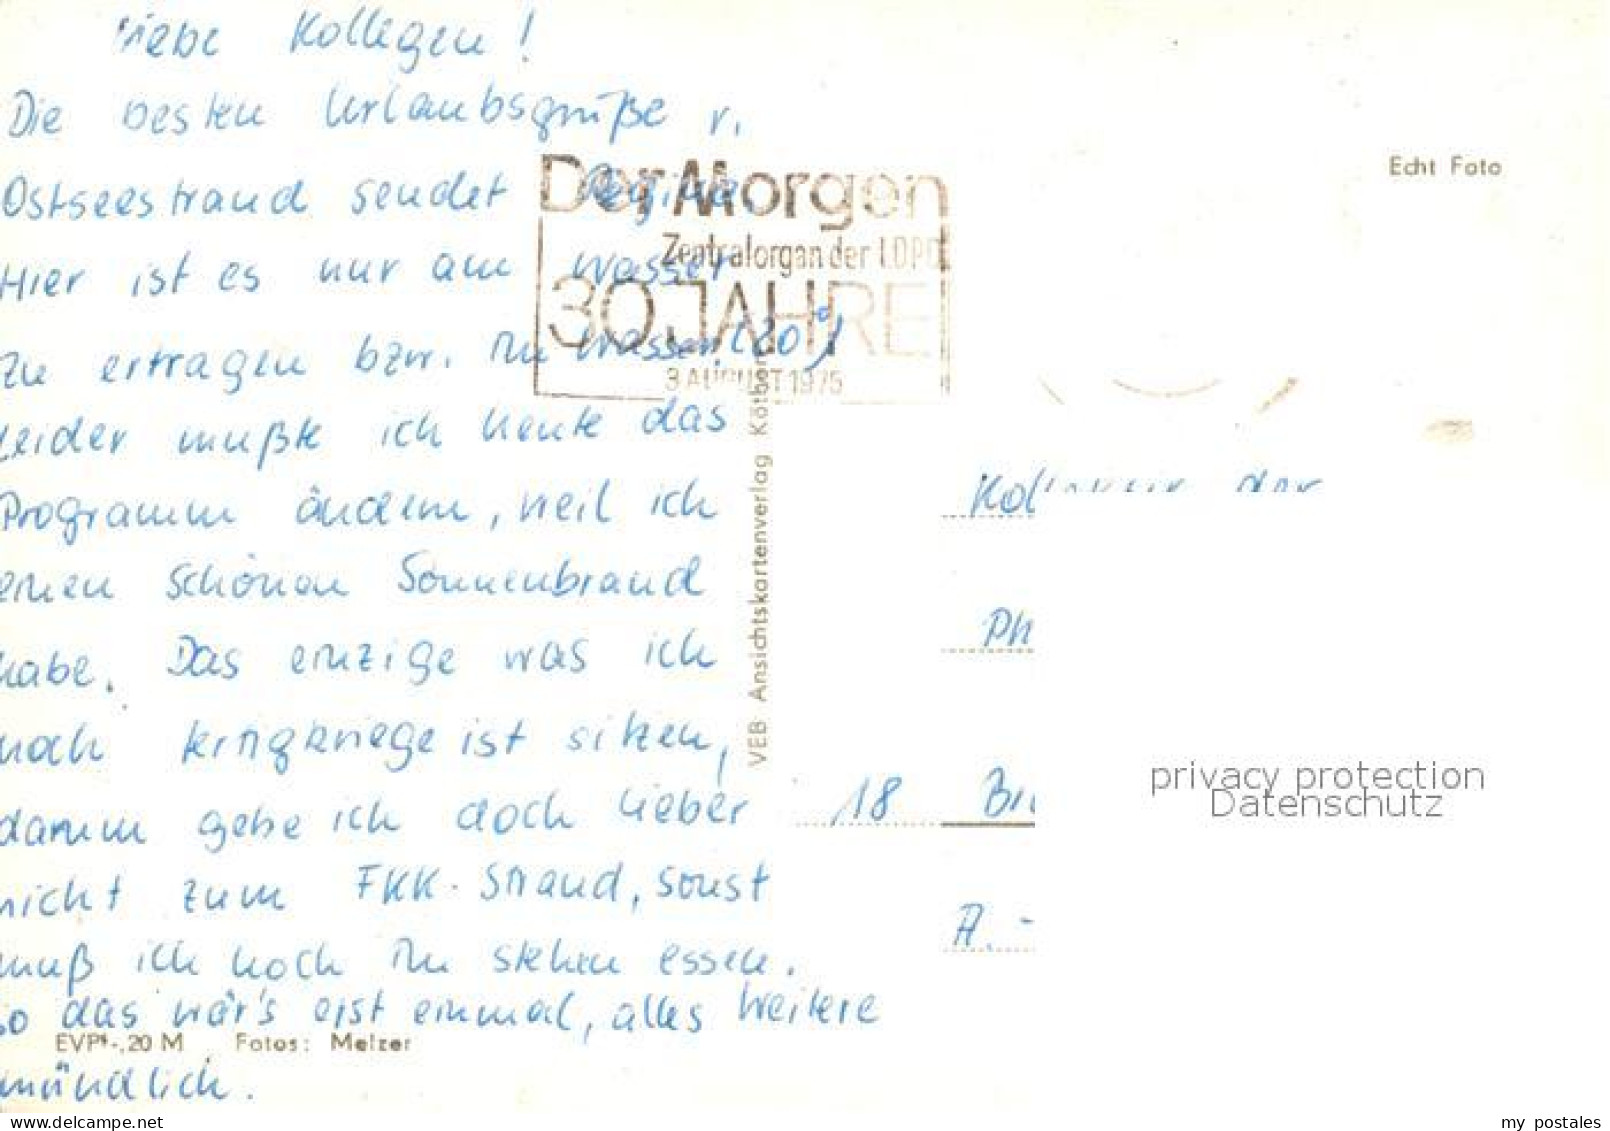 Liebe Kollegen!
Die besten Urlaubsgrüße v.
Ostseestrand sendet Regine.
Hier ist es nur am Wasser
zu ertragen bzw. im Wasser (20°)
Leider mußte ich heute das
Programm ändern, weil ich
einen schönen Sonnenbrand
habe. Das einzige was ich
noch fertigkriege ist sitzen,
darum gehe ich doch lieber
nicht zum FKK-Strand, sonst
muß ich noch im stehen essen.
So das wär's erst einmal, alles Weitere
mündlich.
EVP -,20 M Fotos: Melzer
Der Morgen
Zentralorgan der LDPD
30 JAHRE
3 AUGUST 1975
VEB Ansichtskartenverlag Köthen
Echt Foto
der
18
A.-
privacy protection
Datenschutz
my postales